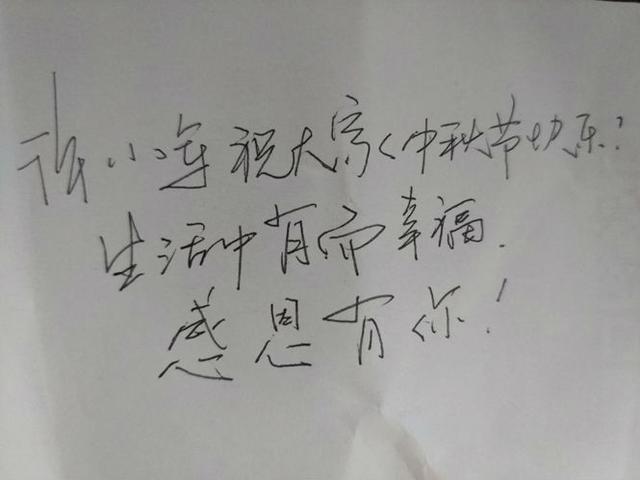 小军祝大家中秋节快乐!
生活中有 幸福.
感恩有你!